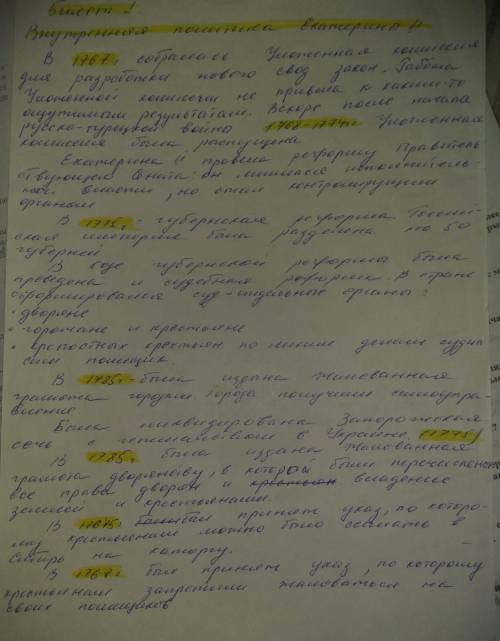 Билет 1
Внутренняя политика Екатерины II
В 1767г собралась Уложенная комиссия
для разработки нового свод закон. Работа
Уложенной комиссии не привела к каким-то
ощутимым результатам. Вскоре после начала
русско-турецкой войны 1768-1774гг Уложенная
комиссия была распущена
Екатерина II провела реформу Правитель
ствующего Сената: он лишился исполнитель-
ной власти, но стал контролирующим
органом
В 1775г - губернская реформа. Россий-
ская империя была разделена на 50
губерний
В ходе губернской реформы была
проведена и судебная реформа. В стране
сформировался суд-отдельные органы:
• дворяне
• горожане и крестьяне
• крепостных крестьян по мелким делам судил
сам помещик.
В 1785г - была издана Жалованная
грамота городам. Города получили самоупра-
вление.
Была ликвидирована Запорожская
сечь с гетманством в Украине (1775)
В 1785г. была издана Жалованная
грамота дворянству, в которой были перечислены
все права дворян и крестьян владение
землей и крестьянами.
В 1765г. был принят указ, по которо-
му крестьянами можно было ссылать в
Сибирь на каторгу.
В 1767г был принят указ, по которому
крестьянам запретили жаловаться на
своих помещиков